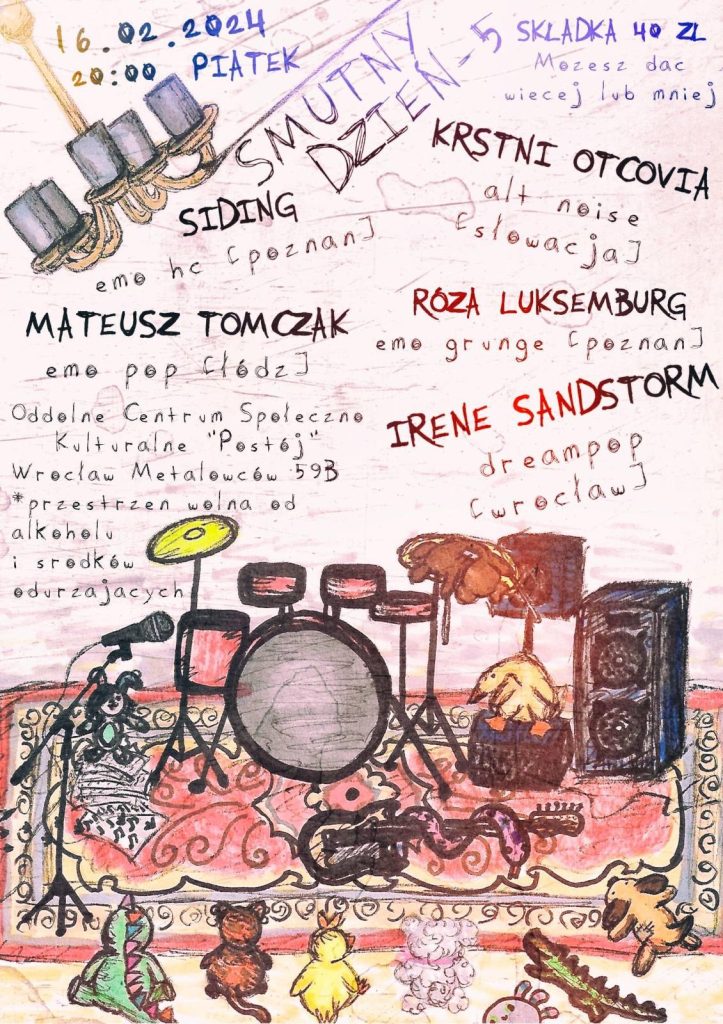 16.02.2024
20:00 PIATEK
SMUTNY
DZIEŃ-5
SKLADKA 40 ZL
Mozesz dac
wiecej lub mniej
KRSTNI OTCOVIA
alt noise
[słowacja]
SIDING
emo hc [poznan]
RÓZA LUKSEMBURG
emo grunge [poznan]
MATEUSZ TOMCZAK
emo pop [łódz]
IRENE SANDSTORM
dreampop
[wrocław]
Oddolne Centrum Społeczno
Kulturalne "Postój"
Wrocław Metalowców 59B
*przestrzen wolna od
alkoholu
i srodków
odurzajacych